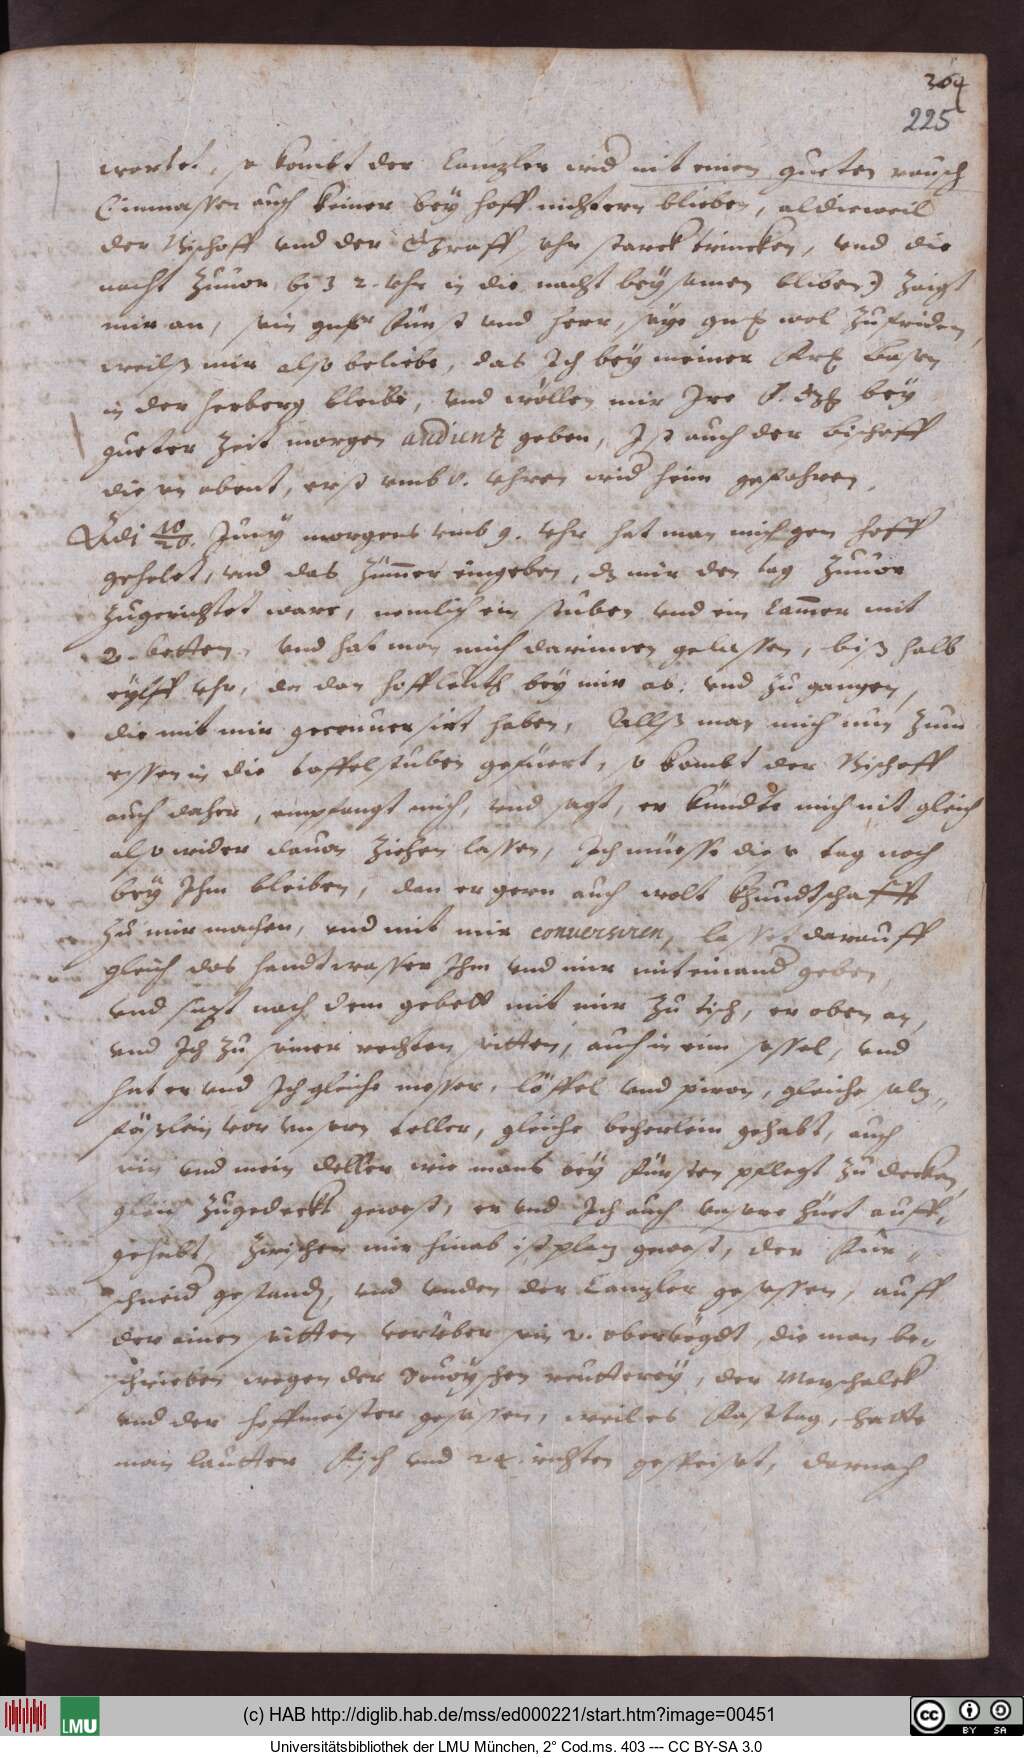 264
225
wartet, so kombt der Canzler wid mit einem gueten rausch
(:inmassen auch keiner bey hoff nichtern blieben, aldieweil
der Bischoff vnd der Graff, sehr starck trincken, vnd die
nacht zuuor biß 2. vhr in die nacht beysamen bliben:) zaigt
mir an, sein gnst fürst vnd herr, seye gn wol zufriden,
weilß mir also beliebe, das Ich bey meiner Basen
in der herberg bleibe, vnd wöllen mir Ire F. G. bey
gueter Zeit morgen audienz geben, Ist auch der bischoff
disen abent, erst vmb 8. vhren wid heim gefahren.
Adi 10/20. Juny morgens vmb 9. vhr hat man mich gen hoff
geholet, vnd das Zimmer eingeben, dz mir den tag zuuor
zugerichtet ware, nemlich ein stuben vnd ein Cammer mit
2. betten, vnd hat man mich darinnen gelassen, biß halb
eylff vhr, da dan hoffleuth bey mir ab: vnd zu gangen,
die mit mir geconuersirt haben, Alß man mich nun zum
essen in die taffelstuben gefüert, so kombt der Bischoff
auch daher, empfangt mich, vnd sagt, er kündte mich nit gleich
also wider dauon ziehen lassen, Ich müesse disen tag noch
bey Ihm bleiben, dan er gern auch wolt Khundtschafft
zu mir machen, vnd mit mir conuersiren, lasset darauff
gleich das handtwasser Ihm vnd mir miteinand geben,
vnd sizt nach dem gebett mit mir zu tisch, er oben an,
vnd Ich zu seiner rechten seitten, auch in eim sessel, vnd
hat er vnd Ich gleiche messer, löffel vnd piron, gleiche salz
fäßlein vor vnsern teller, gleiche becherlein gehabt, auch
sein vnd mein deller wie mans bey fürsten pflegt zu decken,
gleich zugedeckt gewest, er vnd Ich auch vnsere hüet auff
gehabt, zwischen mir hinab ist plaz gewest, der Für
schneid gestanden, vnd vnden der Canzler gesessen, auff
der einen seitten vorüber sein 2. oberuögdt, die man be
schrieben wegen der Sauoyschen reutterey, der Marschalck
vnd der hoffmeister gesessen, weil es Fasttag, hatte
man lautter fisch vnd 24. richten gespeiset, darnach
(c) HAB http://diglib.hab.de/mss/ed000221/start.htm?image=00451
LMU
CC BY SA
Universitätsbibliothek der LMU München, 2° Cod.ms. 403 --- CC BY-SA 3.0